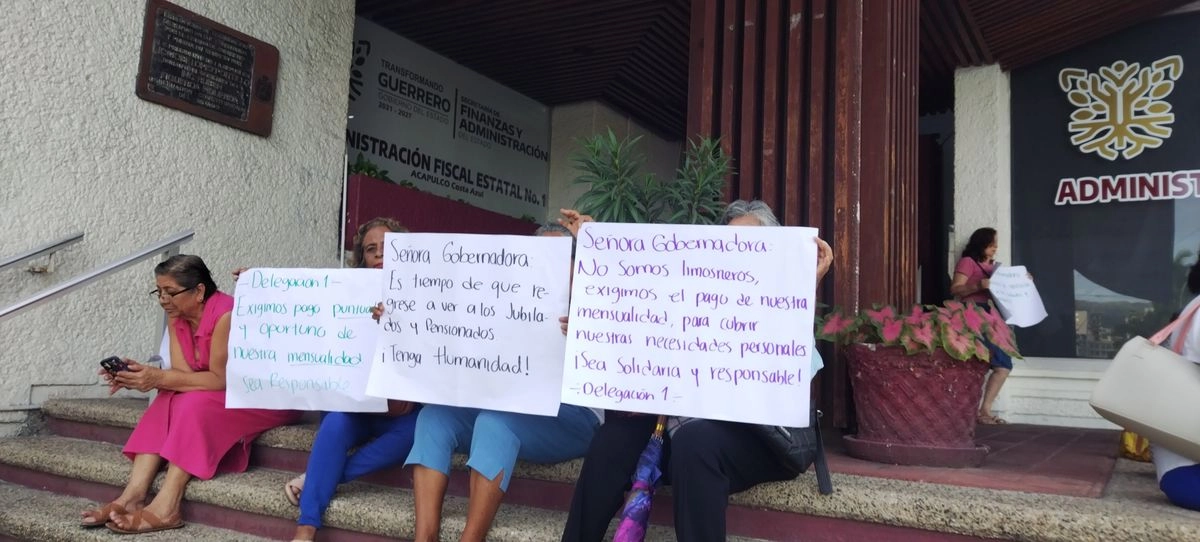 TRANSFORMANDO
GUERRERO
GOBIERNO DEL ESTADO
2021 - 2027
SECRETARÍA DE
FINANZAS Y
ADMINISTRACIÓN
DEL ESTADO
NISTRACIÓN FISCAL ESTATAL No. 1
ACAPULCO Costa Azul
ADMINIST
- Delegación 1 -
Exigimos pago puntual
y oportuno de
nuestra mensualidad
Sea Responsable
Señora Gobernadora:
Es tiempo de que re-
grese a ver a los Jubila-
dos y Pensionados
¡Tenga Humanidad!
Señora Gobernadora:
No Somos limosneros,
exigimos el pago de nuestra
mensualidad, para cubrir
nuestras necesidades personales
¡Sea Solidaria y responsable!
- Delegación 1 -